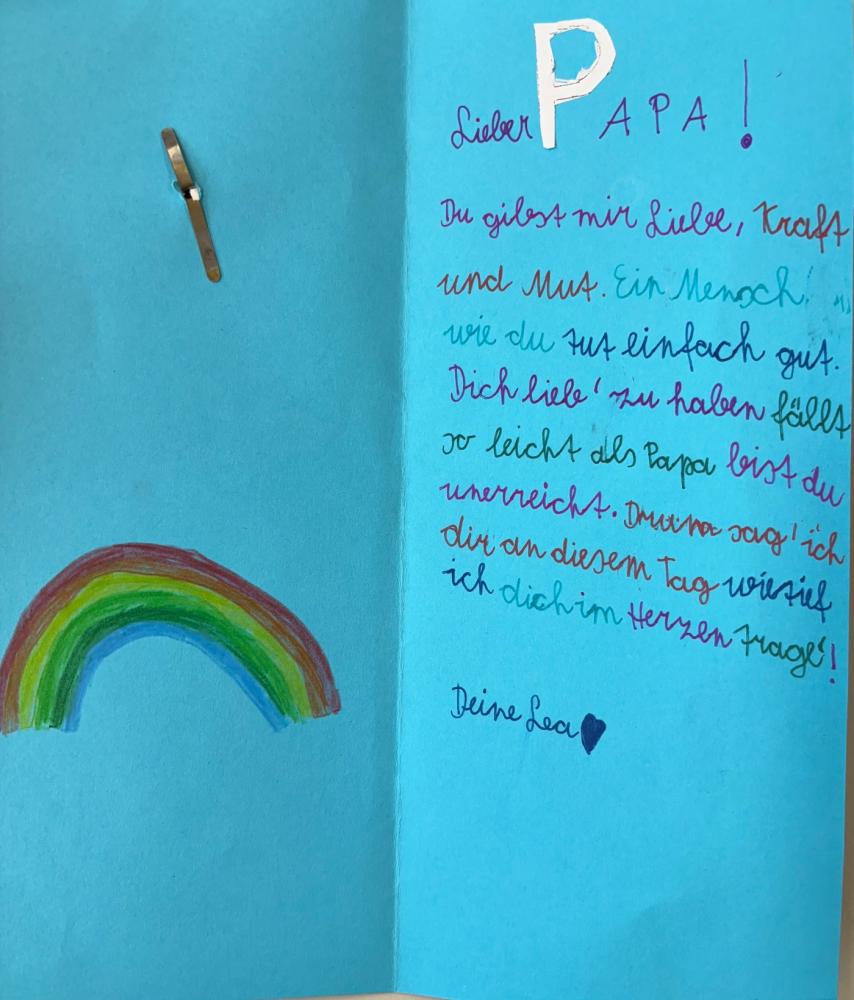 Lieber PAPA!
Du gibst mir Liebe, Kraft
und Mut. Ein Mensch
wie du tut einfach gut.
Dich lieb' zu haben fällt
so leicht als Papa bist du
unerreicht. Drum sag' ich
dir an diesem Tag wie tief
ich dich im Herzen trage'!
Deine Lea